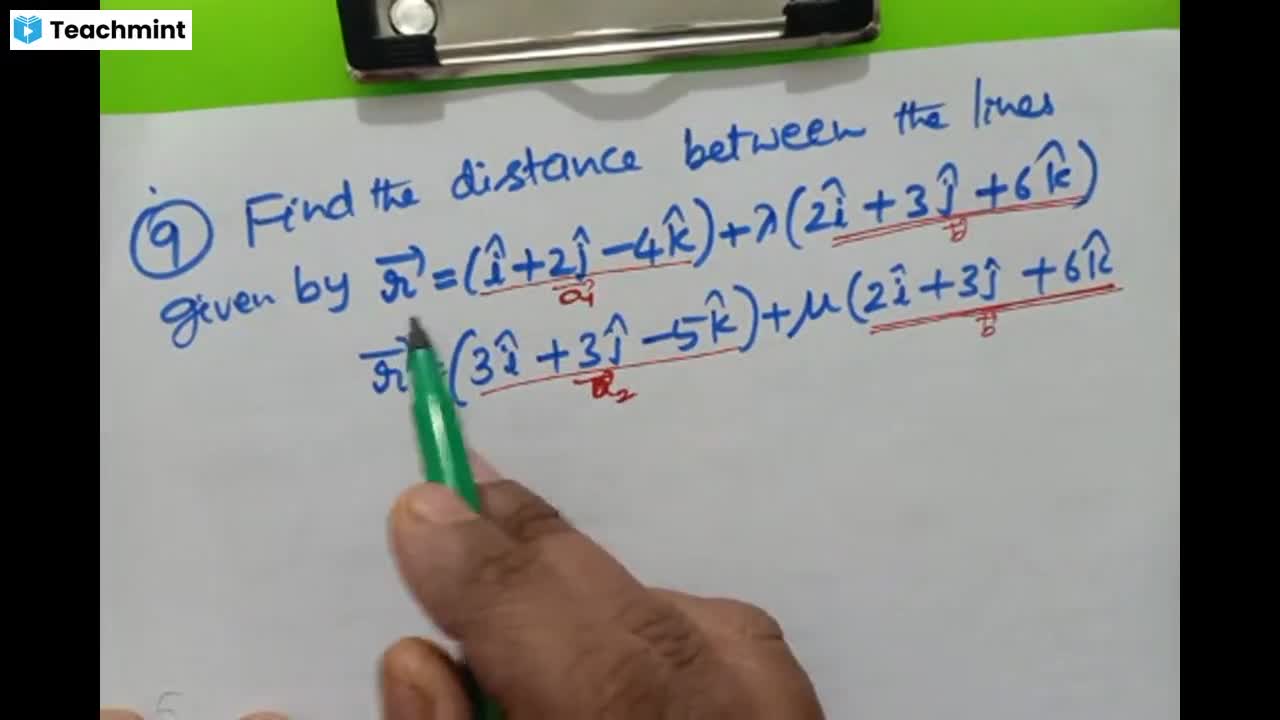 Teachmint
9 Find the distance between the lines
given by r⃗ = (î + 2ĵ - 4k̂) + λ(2î + 3ĵ + 6k̂)
a⃗₁ b⃗
r⃗ = (3î + 3ĵ - 5k̂) + μ(2î + 3ĵ + 6k̂
a⃗₂ b⃗